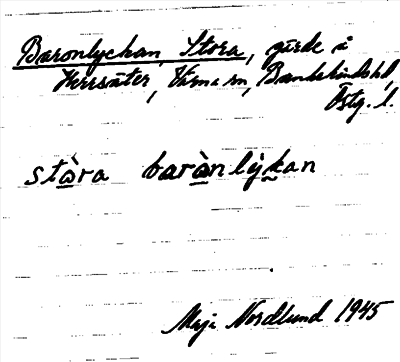 Baronlyckan, Stora, gärde å
Herrsäter, Värna sn, Bankekinds hd,
Östg. l.
stàra baràn lỳkan
Maja Nordlund 1945